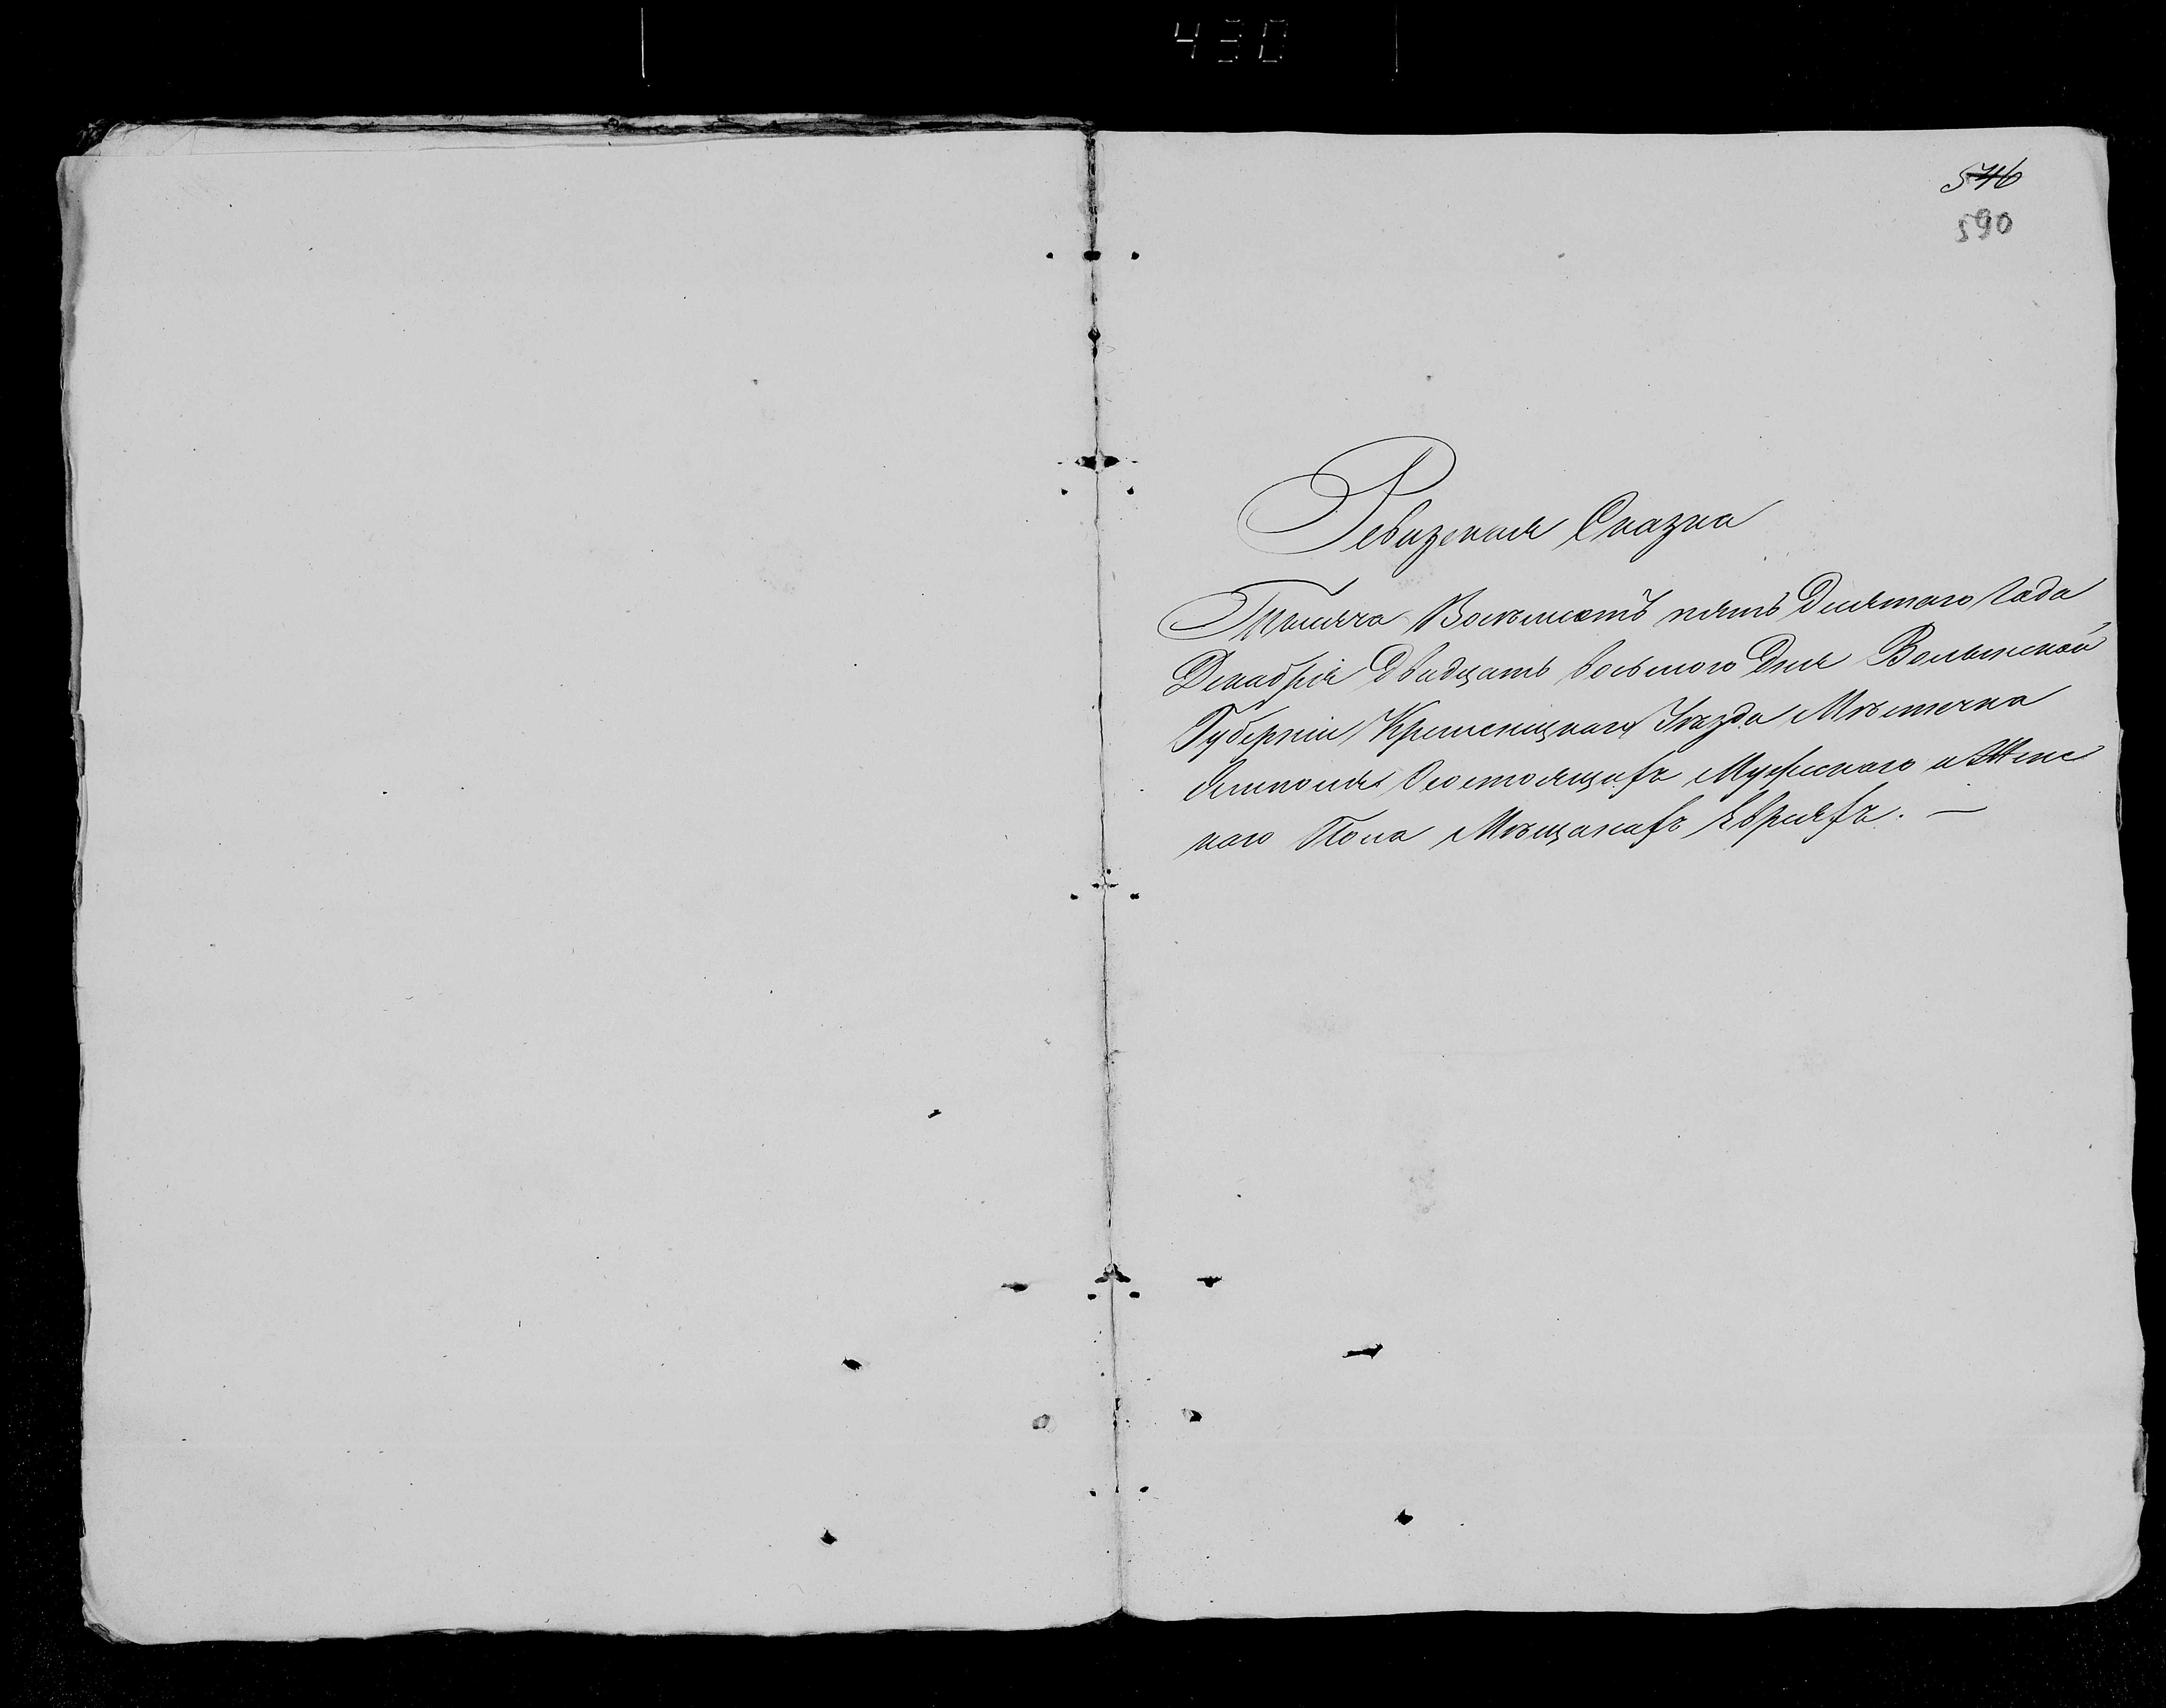 430
546
590
Ревизская Сказка
Тысяча Восемьсотъ пять десятаго Года
Декабря двадцать восьмого Дня Волынской
Губерніи Кременецкаго Уѣзда Мѣстечка
Ямполя Состоящихъ Мужескаго и Женс
каго Пола Мѣщанахъ Евреяхъ. —